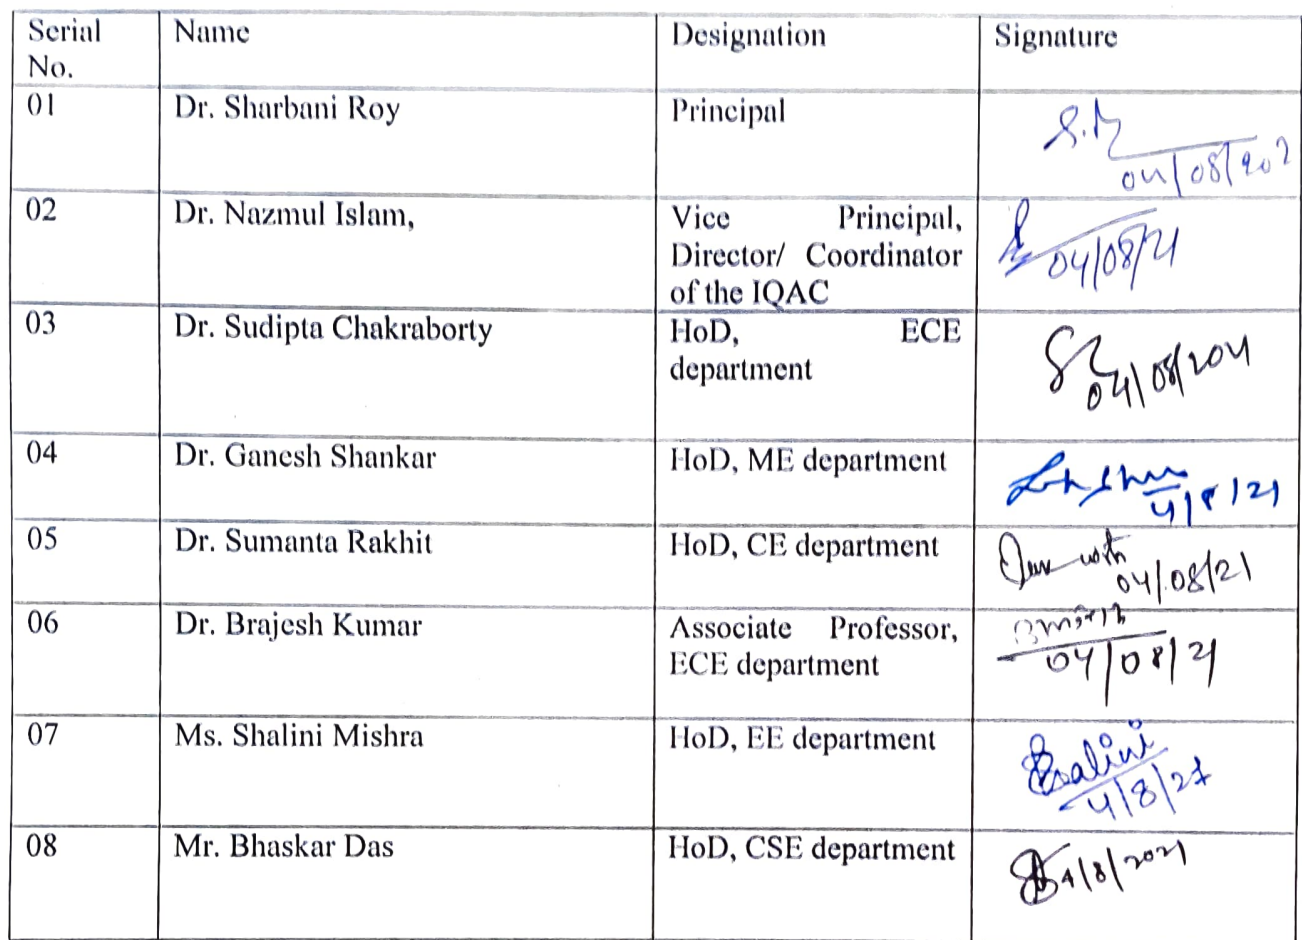 Serial No. Name Designation Signature
01 Dr. Sharbani Roy Principal
04/08/202
02 Dr. Nazmul Islam, Vice Principal,
Director/ Coordinator
of the IQAC
04/08/21
03 Dr. Sudipta Chakraborty HoD, ECE
department
04/08/2021
04 Dr. Ganesh Shankar HoD, ME department
4/8/21
05 Dr. Sumanta Rakhit HoD, CE department
04/08/21
06 Dr. Brajesh Kumar Associate Professor,
ECE department
04/08/21
07 Ms. Shalini Mishra HoD, EE department
Shalini
4/8/21
08 Mr. Bhaskar Das HoD, CSE department
4/8/2021